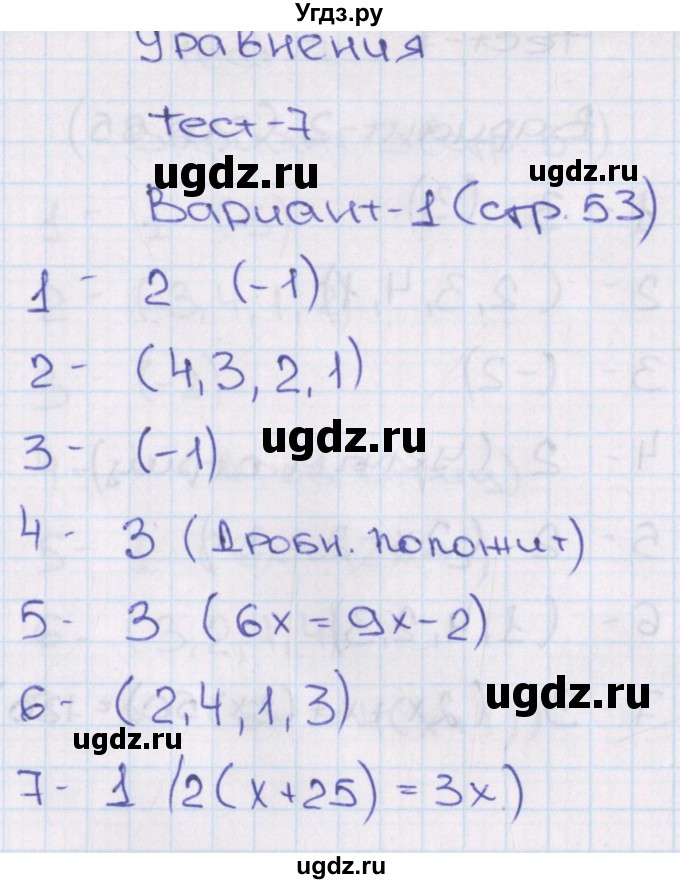 Угдз.ру
Уравнения
тест-7
ugdz.ru ugdz.ru
Вариант-1 (стр. 53)
1 - 2 (-1)
2 - (4, 3, 2, 1)
ugdz.ru
3 - (-1)
4 - 3 (дробн. положит)
5 - 3 (6x = 9x - 2)
6 - (2, 4, 1, 3)
ugdz.ru
ugdz.ru
7 - 1 (2(x + 25) = 3x.)
ugdz.ru